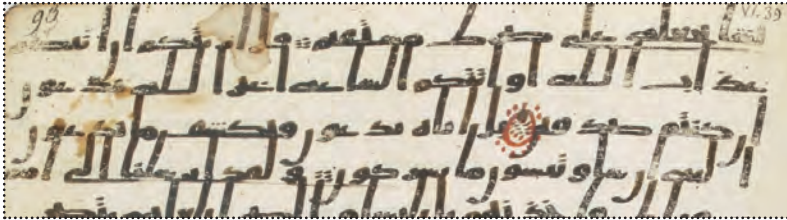 93 VI. 39
يجعله على صرط مستقيم قل اريتكم ان اتيكم
عذاب الله او اتتكم الساعه اغير الله تدعون ا
ن كنتم صدقين بل اياه تدعون فيكشف ما تدعون
اليه ان شا وتنسون ما تشركون ولقد ارسلنا الى امم